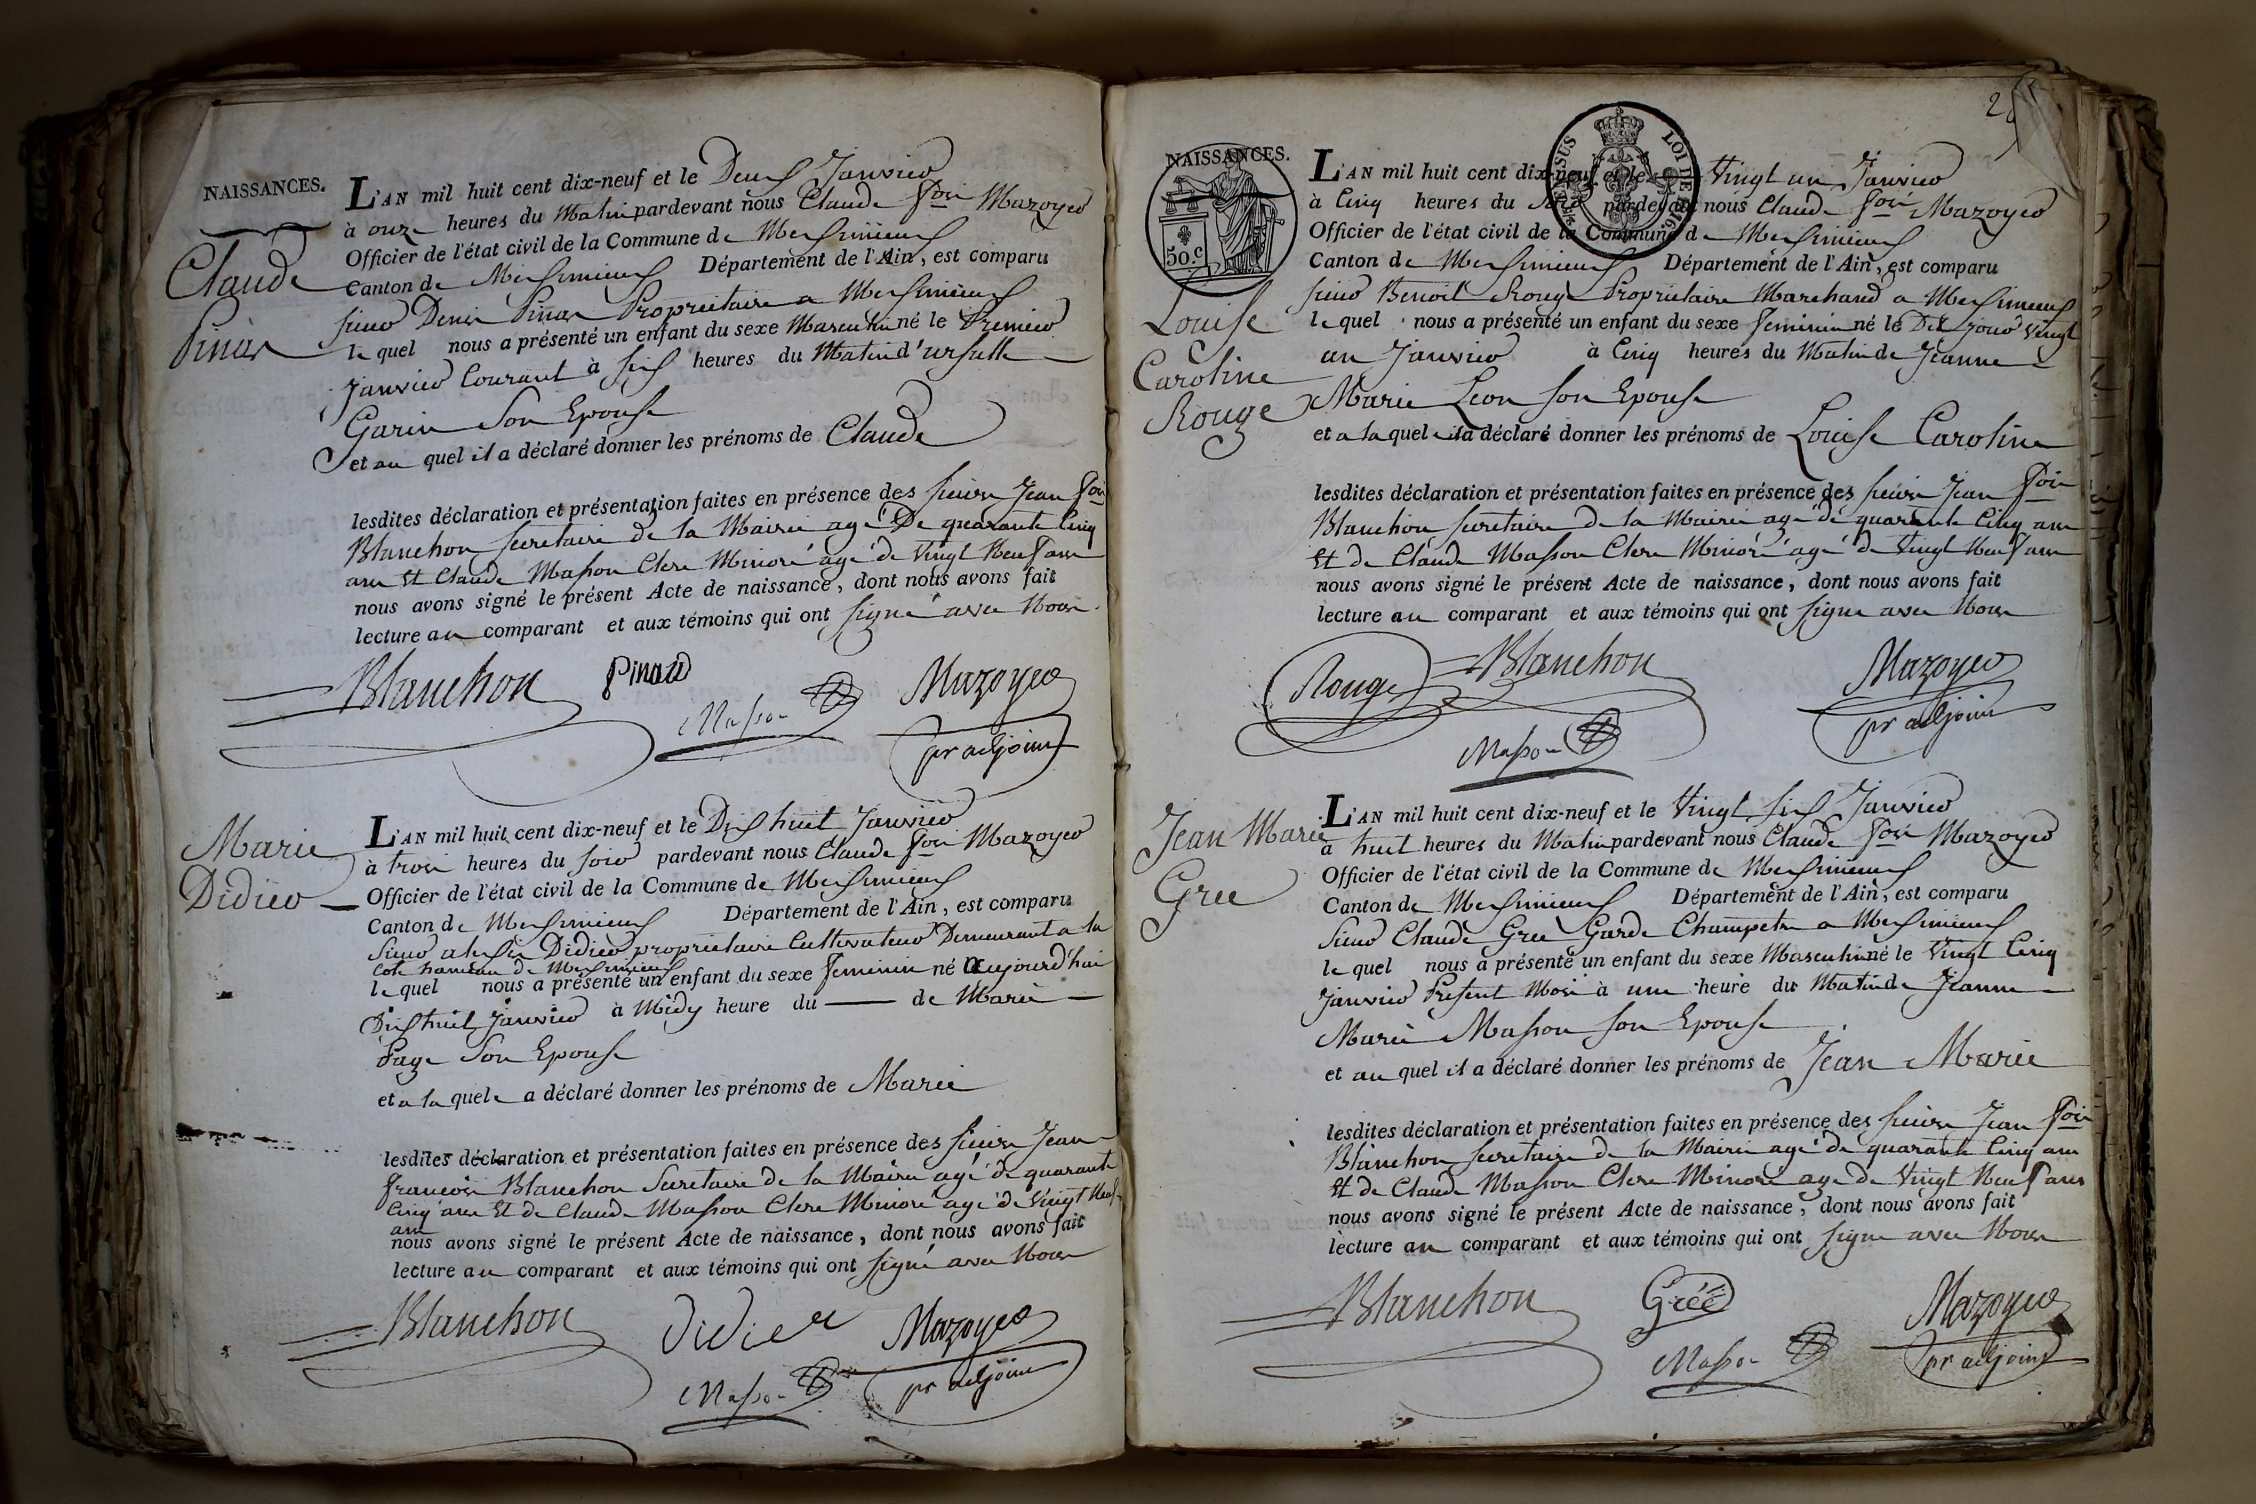 NAISSANCES.
Claude
Pinar
L'AN mil huit cent dix-neuf et le Deux Janvier
à onze heures du Matin pardevant nous Claude fois Mazoyer
Officier de l'état civil de la Commune de Meximieux
Canton de Meximieux Département de l'Ain, est comparu
sieur Denis Pinar Proprietaire a Meximieux
le quel nous a présenté un enfant du sexe Masculin né le Premier
Janvier Courant à six heures du Matin d'ursulle
Garin Son Epouse
et au quel il a déclaré donner les prénoms de Claude
lesdites déclaration et présentation faites en présence des sieurs Jean fois
Blanchon secretaire de la Mairie agé De quarante Cinq
ans Et Claude Masson Clerc Minoré agé de Vingt Neuf ans
nous avons signé le présent Acte de naissance, dont nous avons fait
lecture au comparant et aux témoins qui ont signé avec Nous
Blanchon Pinard Mazoyer
Masson pr adjoint
Marie
Didier
L'AN mil huit cent dix-neuf et le Dix huit Janvier
à trois heures du soir pardevant nous Claude fois Mazoyer
Officier de l'état civil de la Commune de Meximieux
Canton de Meximieux Département de l'Ain, est comparu
Sieur Didier proprietaire Cultivateur Demeurant a la
Cote hameau de Meximieux
le quel nous a présenté un enfant du sexe feminin né aujourd'hui
Dix huit Janvier à Midy heure du de Marie
Page Son Epouse
et a la quele a déclaré donner les prénoms de Marie
lesdites déclaration et présentation faites en présence des sieurs Jean
francois Blanchon Secretaire de la Mairie agé de quarante
Cinq ans Et de Claude Masson Clerc Minoré agé de Vingt Neuf
ans
nous avons signé le présent Acte de naissance, dont nous avons fait
lecture au comparant et aux témoins qui ont signé avec Nous
Blanchon Didier Mazoyer
Masson pr adjoint
2
NAISSANCES.
50.c
LOI DE 1816
Louise
Caroline
Rouge
L'AN mil huit cent dix-neuf et le Vingt un Janvier
à Cinq heures du Soir pardevant nous Claude fois Mazoyer
Officier de l'état civil de la Commune de Meximieux
Canton de Meximieux Département de l'Ain, est comparu
sieur Benoit Rouge Proprietaire Marchand a Meximieux
le quel nous a présenté un enfant du sexe feminin né le Dit jour Vingt
un Janvier à Cinq heures du Matin de Jeanne
Marie Leon son Epouse
et a la quel il a déclaré donner les prénoms de Louise Caroline
lesdites déclaration et présentation faites en présence des sieurs Jean fois
Blanchon secretaire de la Mairie agé de quarante Cinq ans
Et de Claude Masson Clerc Minoré agé de Vingt Neuf ans
nous avons signé le présent Acte de naissance, dont nous avons fait
lecture au comparant et aux témoins qui ont signe avec Nous
Rouge Blanchon Mazoyer
Masson pr adjoint
Jean Marie
Gree
L'AN mil huit cent dix-neuf et le Vingt six Janvier
à huit heures du Matin pardevant nous Claude fois Mazoyer
Officier de l'état civil de la Commune de Meximieux
Canton de Meximieux Département de l'Ain, est comparu
sieur Claude Gree Garde Champetre a Meximieux
le quel nous a présenté un enfant du sexe Masculin né le Vingt Cinq
Janvier Présent Mois à une heure du Matin de Jeanne
Marie Masson son Epouse
et au quel il a déclaré donner les prénoms de Jean Marie
lesdites déclaration et présentation faites en présence des sieurs Jean fois
Blanchon secretaire de la Mairie agé de quarante Cinq ans
Et de Claude Masson Clerc Minoré age de Vingt Neuf ans
nous avons signé le présent Acte de naissance, dont nous avons fait
lecture au comparant et aux témoins qui ont signe avec Nous
Blanchon Gréé Mazoyer
Masson pr adjoint